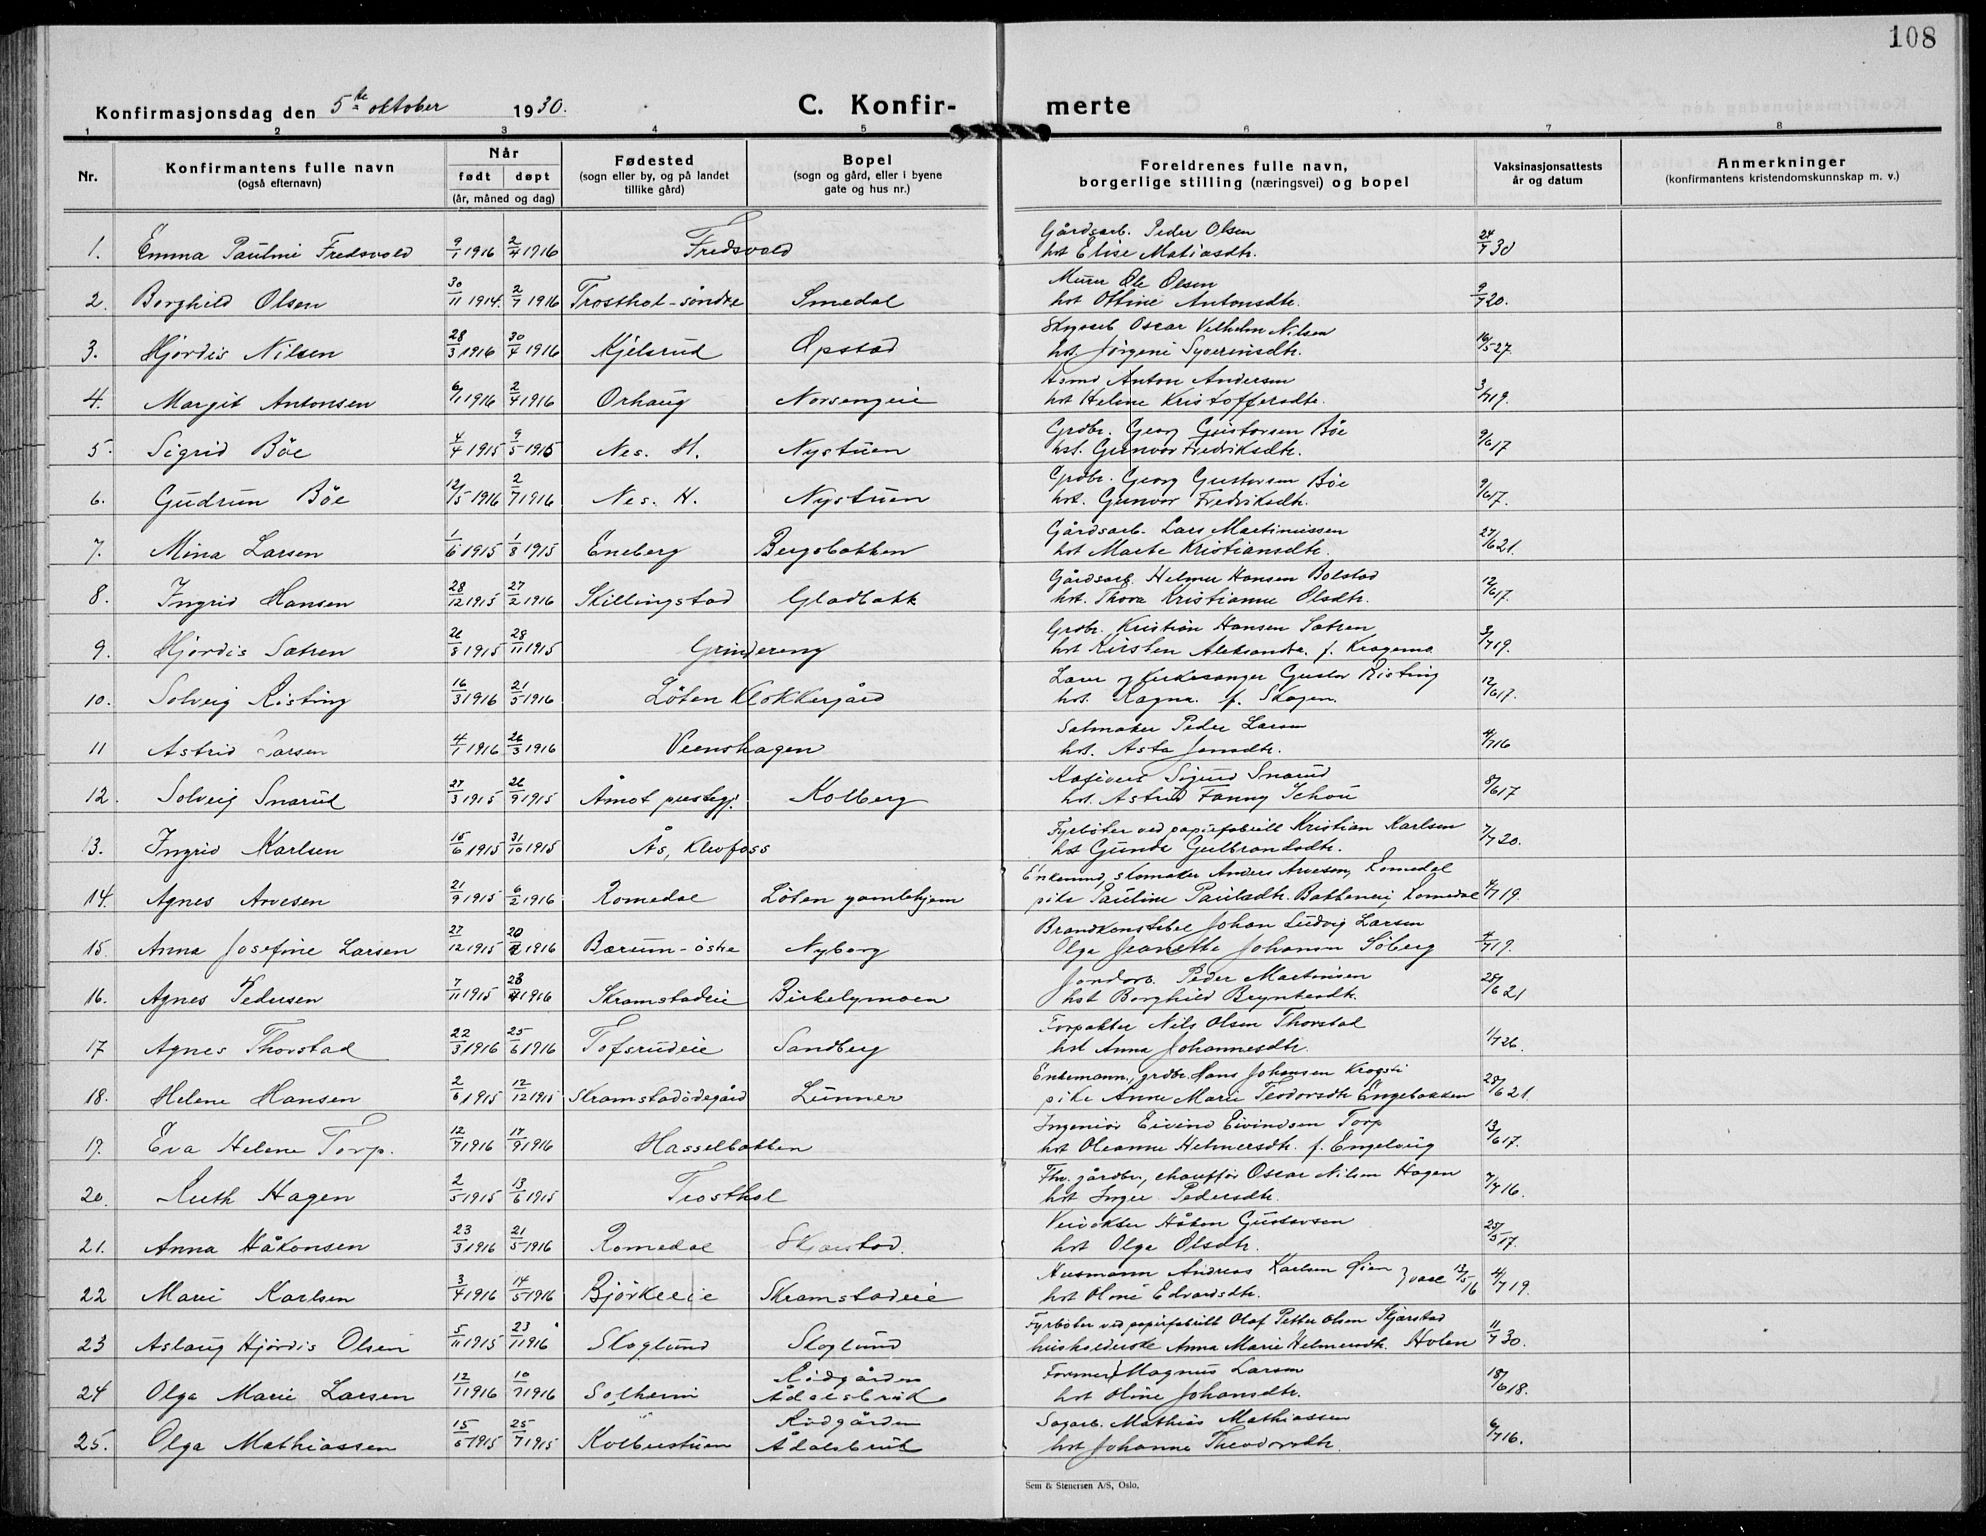 108
Konfirmasjonsdag den 5te oktober 1930. C. Konfir- merte
1 2 3 4 5 6 7 8
Nr. Konfirmantens fulle navn (også efternavn) Når født døpt (år, måned og dag) Fødested (sogn eller by, og på landet tillike gård) Bopel (sogn og gård, eller i byene gate og hus nr.) Foreldrenes fulle navn, borgerlige stilling (næringsvei) og bopel Vaksinasjonsattests år og datum Anmerkninger (konfirmantens kristendomskunnskap m. v.)
Gårdsarb. Peder Olsen
1. Emma Pauline Fredsvold 9/1 1916 2/4 1916 Fredsvold hst Elise Matiasdtr. 24/7 30
Murer Ole Olsen
2. Borghild Olsen 30/11 1914. 2/7 1916 Trosthol-søndre Smedal hst Ottine Antonsdtr. 9/7 20.
Oscar Vilhelm Nilsen
3. Hjørdis Nilsen 28/3 1916 30/4 1916 Kjelsrud Opstad hst. Jørgine Syverinsdtr. 16/5 27.
Anton Andersen
4. Margit Antonsen 6/1 1916 2/4 1916 Orhaug Norsengeie hst Helene Kristoffersdtr. 3/7 19.
Grdbr. Georg Gustavsen Bøe
5. Sigrid Bøe 4/4 1915 9/5 1915 Nes. H. Nystuen hst. Gunvor Fredriksdtr. 9/6 17
Grdbr. Georg Gustavsen Bøe
6. Gudrun Bøe 12/5 1916 2/7 1916 Nes. H. Nystuen hst. Gunvor Fredriksdtr. 9/6 17.
Gårdsarb. Lars Martinussen
7. Mina Larsen 1/6 1915 1/8 1915 Eneberg Bergsbakken hst Marte Kristiansdtr. 27/6 21.
Gårdsarb. Helmer Hansen Bolstad
8. Ingrid Hansen 28/12 1915 27/2 1916 Skillingstad Gladbakk hst. Thora Kristianne Olsdtr. 12/6 17.
Grdbr. Kristian Hansen Sætren
9. Hjørdis Sætren 26/8 1915 28/11 1915 Grindereng hst Kirsten Aleksandra f. Kragermo 3/7 19.
Lærer og kirkesanger Gustav Risting
10. Solveig Risting 16/3 1916 21/5 1916 Løten Klokkergård hst. Ragna f. Skogen. 12/6 17.
Salmaker Peder Larsen
11 Astrid Larsen 4/1 1916 26/3 1916 Veenshagen hst. Asta Jensdtr. 4/7 16
Sigurd Snarud
12. Solveig Snarud 27/3 1915 26/9 1915 Åmot prestegj. Kolberg hst. Astrid Fanny Schou 8/6 17
Fyrbøter ved papirfabrikk Kristian Karlsen
13. Ingrid Karlsen 15/6 1915 31/10 1915 Ås, Klevfoss hst Gunda Gulbrandsdtr. 7/7 20.
Enkemand, skomaker Anders Arvesen, Romedal
14. Agnes Arvesen 21/9 1915 6/2 1916 Romedal Løten gamlehjem pike Pauline Paulsdtr. Bakkeneie Romedal 4/7 19.
Brandkonstabel Johan Ludvig Larsen
15. Anna Josefine Larsen 27/12 1915 20/2 1916 Bærum-østre Nyborg Olga Jeanette Johanson Søberg 4/7 19.
Jordarb. Peder Martinsen
16. Agnes Pedersen 7/11 1915 23/4 1916 Skramstadeie Birkelymoen hst Borghild Bryntesdtr. 28/6 21
Forpakter Nils Olsen Thorstad
17 Agnes Thorstad 22/3 1916 25/6 1916 Tofsrudeie Sandberg hst Anna Johannesdtr. 1/7 26.
Enkemann, grdbr. Hans Johansen Krogsti
18. Helene Hansen 2/6 1915 12/12 1915 Skramstadødegård Lunner pike Anne Marie Teodorsdtr Engebakken 28/6 21.
Ingeniør Eivind Eivindsen Torp
19. Eva Helene Torp. 12/7 1916 17/9 1916 Hasselbakken hst Oleanne Helmersdtr. f. Engelaug 13/6 17.
Fhv. gårdbr, chauffør Oscar Nilsen Hagen
20 Ruth Hagen 2/5 1915 13/6 1915 Trosthol hst Inger Pedersdtr. 7/7 16.
Veivokter Håkon Gustavsen
21. Anna Håkonsen 23/3 1916 21/5 1916 Romedal Skjærstad. hst Olga Olsdtr. 25/5 17.
Husmann Andreas Karlsen Øien
22 Marie Karlsen 3/4 1916 14/5 1916 Bjørkeeie Skramstadeie hst Oline Edvardsdtr. } viet 13/5 16 4/7 19.
Fyrbøter ved papirfabrikk Olaf Petter Olsen Skjærstad
23 Aslaug Hjørdis Olsen 5/11 1915 23/1 1916 Skoglund Skoglund husholderske Anna Marie Helmersdtr. Holen 11/7 30.
Rødgården Former Magnus Larsen
24 Olga Marie Larsen 12/1 1916 10/7 1916 Solheim Ådalsbruk hst Oline Johansdtr. 18/6 18.
Rødgården Sagarb. Mathias Mathiassen
25. Olga Mathiassen 15/5 1915 25/7 1915 Kolberstuen Ådalsbruk hst Johanne Theodorsdtr. 6/7 16.
Sem & Stenersen A/S, Oslo.